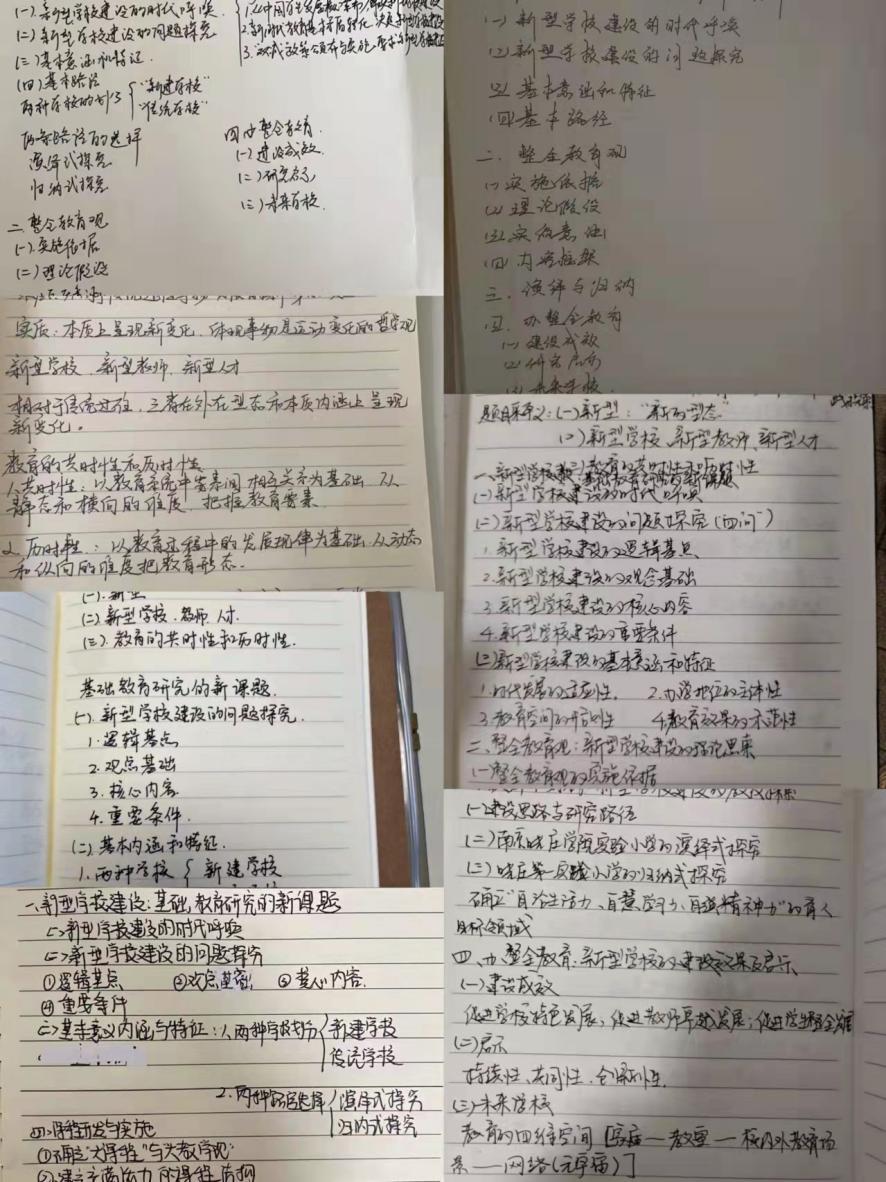 (一).新型学校建设的时代呼唤
(二)新型学校建设的问题探究
(三)基本意涵和特征.
(四)基本路径
两种学校的划分 "新建学校"
"传统学校"
两条路径的选择
演绎式探究
归纳式探究
二.整全教育观
(一).实施依据
(二)理论假设
四.办整全教育.
(一)建设成效.
(二)研究启示
(三)未来学校.
(一)新型学校建设的时代呼唤
(2)新型学校建设的问题探究
(3)基本意涵和特征
(四)基本路径
二.整全教育观
(1)实施依据
(2)理论假设
(3)实施意涵
(四)内容框架
三.演绎与归纳
四.办整全教育
(1)建设成效
(2)研究启示
(3)未来学校.
实质:本质上呈现新变化.体现事物是运动变化的哲学观
新型学校、新型教师、新型人才
相对于传统过往,三者在外在型态和本质内涵上呈现
新变化。
教育的共时性和历时性
1.共时性:以教育系统中要素间相互关系为基础,从
静态和横向的维度,把握教育要素.
2.历时性:以教育过程中的发展规律为基础,从动态
和纵向的维度把教育形态.
题目释义:(一)新型:"新的型态"
(2)新型学校、新型教师、新型人才
(一)新型学校建设的时代呼唤
(二)新型学校建设的问题探究(四问)
1.新型学校建设的逻辑基点
2.新型学校建设的观念基础
3.新型学校建设的核心内容
4.新型学校建设的重要条件
(三)新型学校建设的基本意涵和特征
1.时代发展的适应性. 2.办学地位的主体性
3.教育空间的开创性 4.教育效果的示范性
二、整全教育观:新型学校建设的理论思索
(一)整全教育观的实施依据
(一).新型
(二).新型学校.教师.人才.
(三).教育的共时性和历时性.
基础教育研究的新课题.
(一).新型学校建设的问题探究.
1.逻辑基点
2.观点基础
3.核心内容
4.重要条件.
(二).基本内涵和特征.
1.两种学校 新建学校
(一)建设思路与研究路径
(二)南京晓庄学院实验小学的演绎式探究
(三)晓庄第一实验小学的归纳式探究
确立"自治生活力、自慧学习力、自强精神力"的育人
目标领域
四、办整全教育:新型学校的建设效果及启示
(一)建设成效
促进学校特色发展;促进教师卓越发展;促进学生整全发展
(二)启示
持续性、共同性、创新性.
(三)未来学校
教育的四维空间[家庭—教室—校内外教育场
景——网络(元宇宙)]
一、新型学校建设:基础教育研究的新课题
(一)新型学校建设的时代呼唤
(二)新型学校建设的问题探究
①逻辑基点 ②观点基础 ③核心内容.
④重要条件
(三)基本意义内涵与特征:1.两种学校划分 新建学校
传统学校
2.两种路径选择 演绎式探究
归纳式探究
四.课程研发与实施
①确立"大课程"与大教学观"